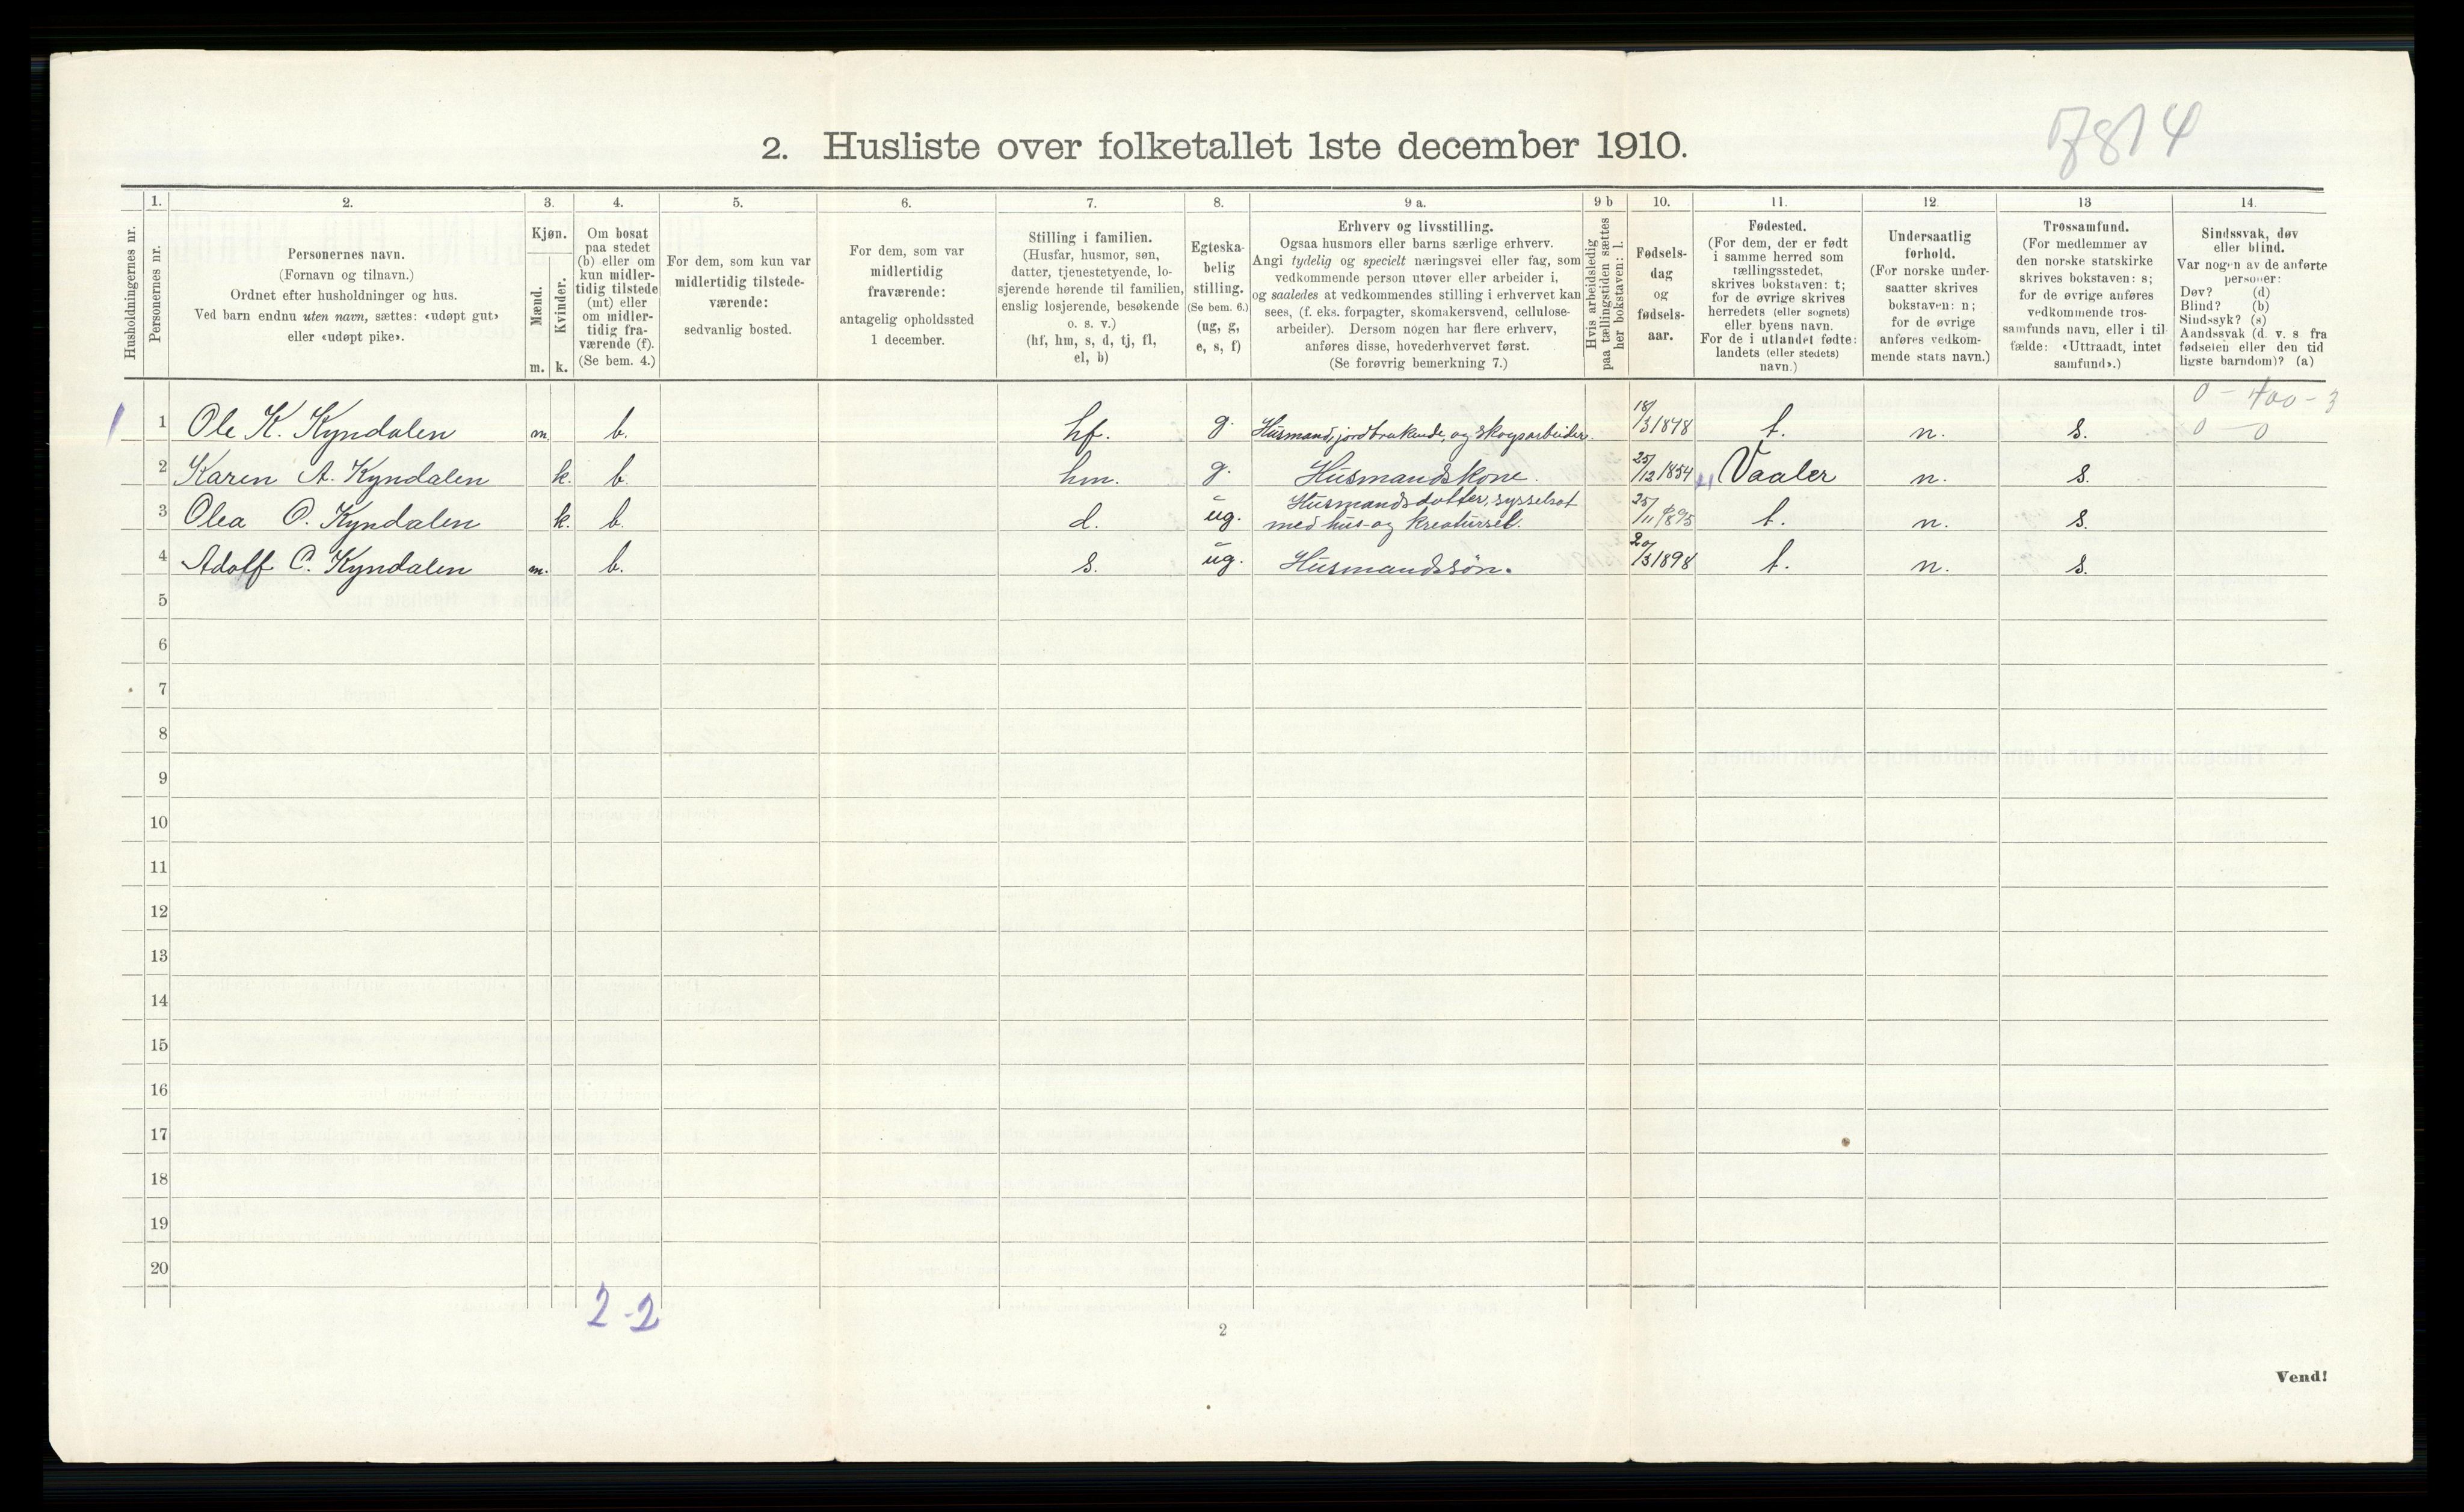 7814
2. Husliste over folketallet 1ste december 1910.
Husholdningernes nr.
1.
Personernes nr.
2.
Personernes navn.
(Fornavn og tilnavn.)
Ordnet efter husholdninger og hus.
Ved barn endnu uten navn, sættes: «udøpt gut»
eller «udøpt pike».
3.
Kjøn.
Mænd.
Kvinder.
m. k.
4.
Om bosat
paa stedet
(b) eller om
kun midler-
tidig tilstede
(mt) eller
om midler-
tidig fra-
værende (f).
(Se bem. 4.)
5.
For dem, som kun var
midlertidig tilstede-
værende:
sedvanlig bosted.
6.
For dem, som var
midlertidig
fraværende:
antagelig opholdssted
1 december.
7.
Stilling i familien.
(Husfar, husmor, søn,
datter, tjenestetyende, lo-
sjerende hørende til familien,
enslig losjerende, besøkende
o. s. v.)
(hf, hm, s, d, tj, fl,
el, b)
8.
Egteska-
belig
stilling.
(Se bem. 6.)
(ug, g,
e, s, f)
9 a.
Erhverv og livsstilling.
Ogsaa husmors eller barns særlige erhverv.
Angi tydelig og specielt næringsvei eller fag, som
vedkommende person utøver eller arbeider i,
og saaledes at vedkommendes stilling i erhvervet kan
sees, (f. eks. forpagter, skomakersvend, cellulose-
arbeider). Dersom nogen har flere erhverv,
anføres disse, hovederhvervet først.
(Se forøvrig bemerkning 7.)
9 b
Hvis arbeidsledig
paa tællingstiden sættes
her bokstaven: l.
10.
Fødsels-
dag
og
fødsels-
aar.
11.
Fødested.
(For dem, der er født
i samme herred som
tællingsstedet,
skrives bokstaven: t;
for de øvrige skrives
herredets (eller sognets)
eller byens navn.
For de i utlandet fødte:
landets (eller stedets)
navn.)
12.
Undersaatlig
forhold.
(For norske under-
saatter skrives
bokstaven: n;
for de øvrige
anføres vedkom-
mende stats navn.)
13
Trossamfund.
(For medlemmer av
den norske statskirke
skrives bokstaven: s;
for de øvrige anføres
vedkommende tros-
samfunds navn, eller i til-
fælde: «Uttraadt, intet
samfund».)
14.
Sindssvak, døv
eller blind.
Var nogen av de anførte
personer:
Døv? (d)
Blind? (b)
Sindssyk? (s)
Aandssvak (d. v. s fra
fødselen eller den tid
ligste barndom)? (a)
0 - 400 - 3
1 1 Ole K. Kyndalen m. b. hf. g. Husmand, jordbrukende, og skogsarbeider. 18/3 1848 t. n. s. 0 - 0
2 Karen A. Kyndalen k. b. hm. g. Husmandskone. 25/12 1854 Vaaler n. s.
3 Olea O. Kyndalen k. b. d. ug. Husmandsdatter, sysselsat
med hus- og kreaturstel. 25/11 1895 t. n. s.
4 Adolf O. Kyndalen m. b. s. ug. Husmandssøn. 20/3 1898 t. n. s.
5
6
7
8
9
10
11
12
13
14
15
16
17
18
19
20
2-2
2
Vend!